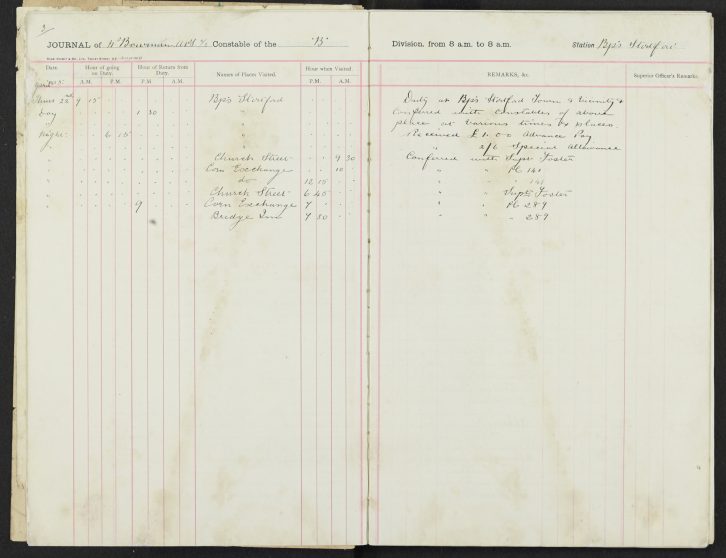 3
JOURNAL of H Bowman Constable of the "B" Division, from 8 a.m. to 8 a.m. Station Bp's Stortford
Date Hour of going on Duty. Hour of Return from Duty. Names of Places Visited. Hour when Visited. REMARKS, &c. Superior Officer's Remarks.
A.M. P.M. P.M. A.M. P.M. A.M.
22nd 9 15 Bp's Stortford Duty at Bp's Stortford Town & Vicinity &
Day 1 30 " Conferred with Constables of above
" place at various times & places
Night 6 15 " Received £1.0.0 Advance Pay
" " a/c Special Allowance
" Church Street 9 30 Conferred with Supt Foster
" Corn Exchange 10 " " Pc 141
" do 12 15 " " 141
" Church Street 6 45 " " Supt Foster
" 9 Corn Exchange 7 " " Pc 289
Bridge Inn 7 30 " " 289